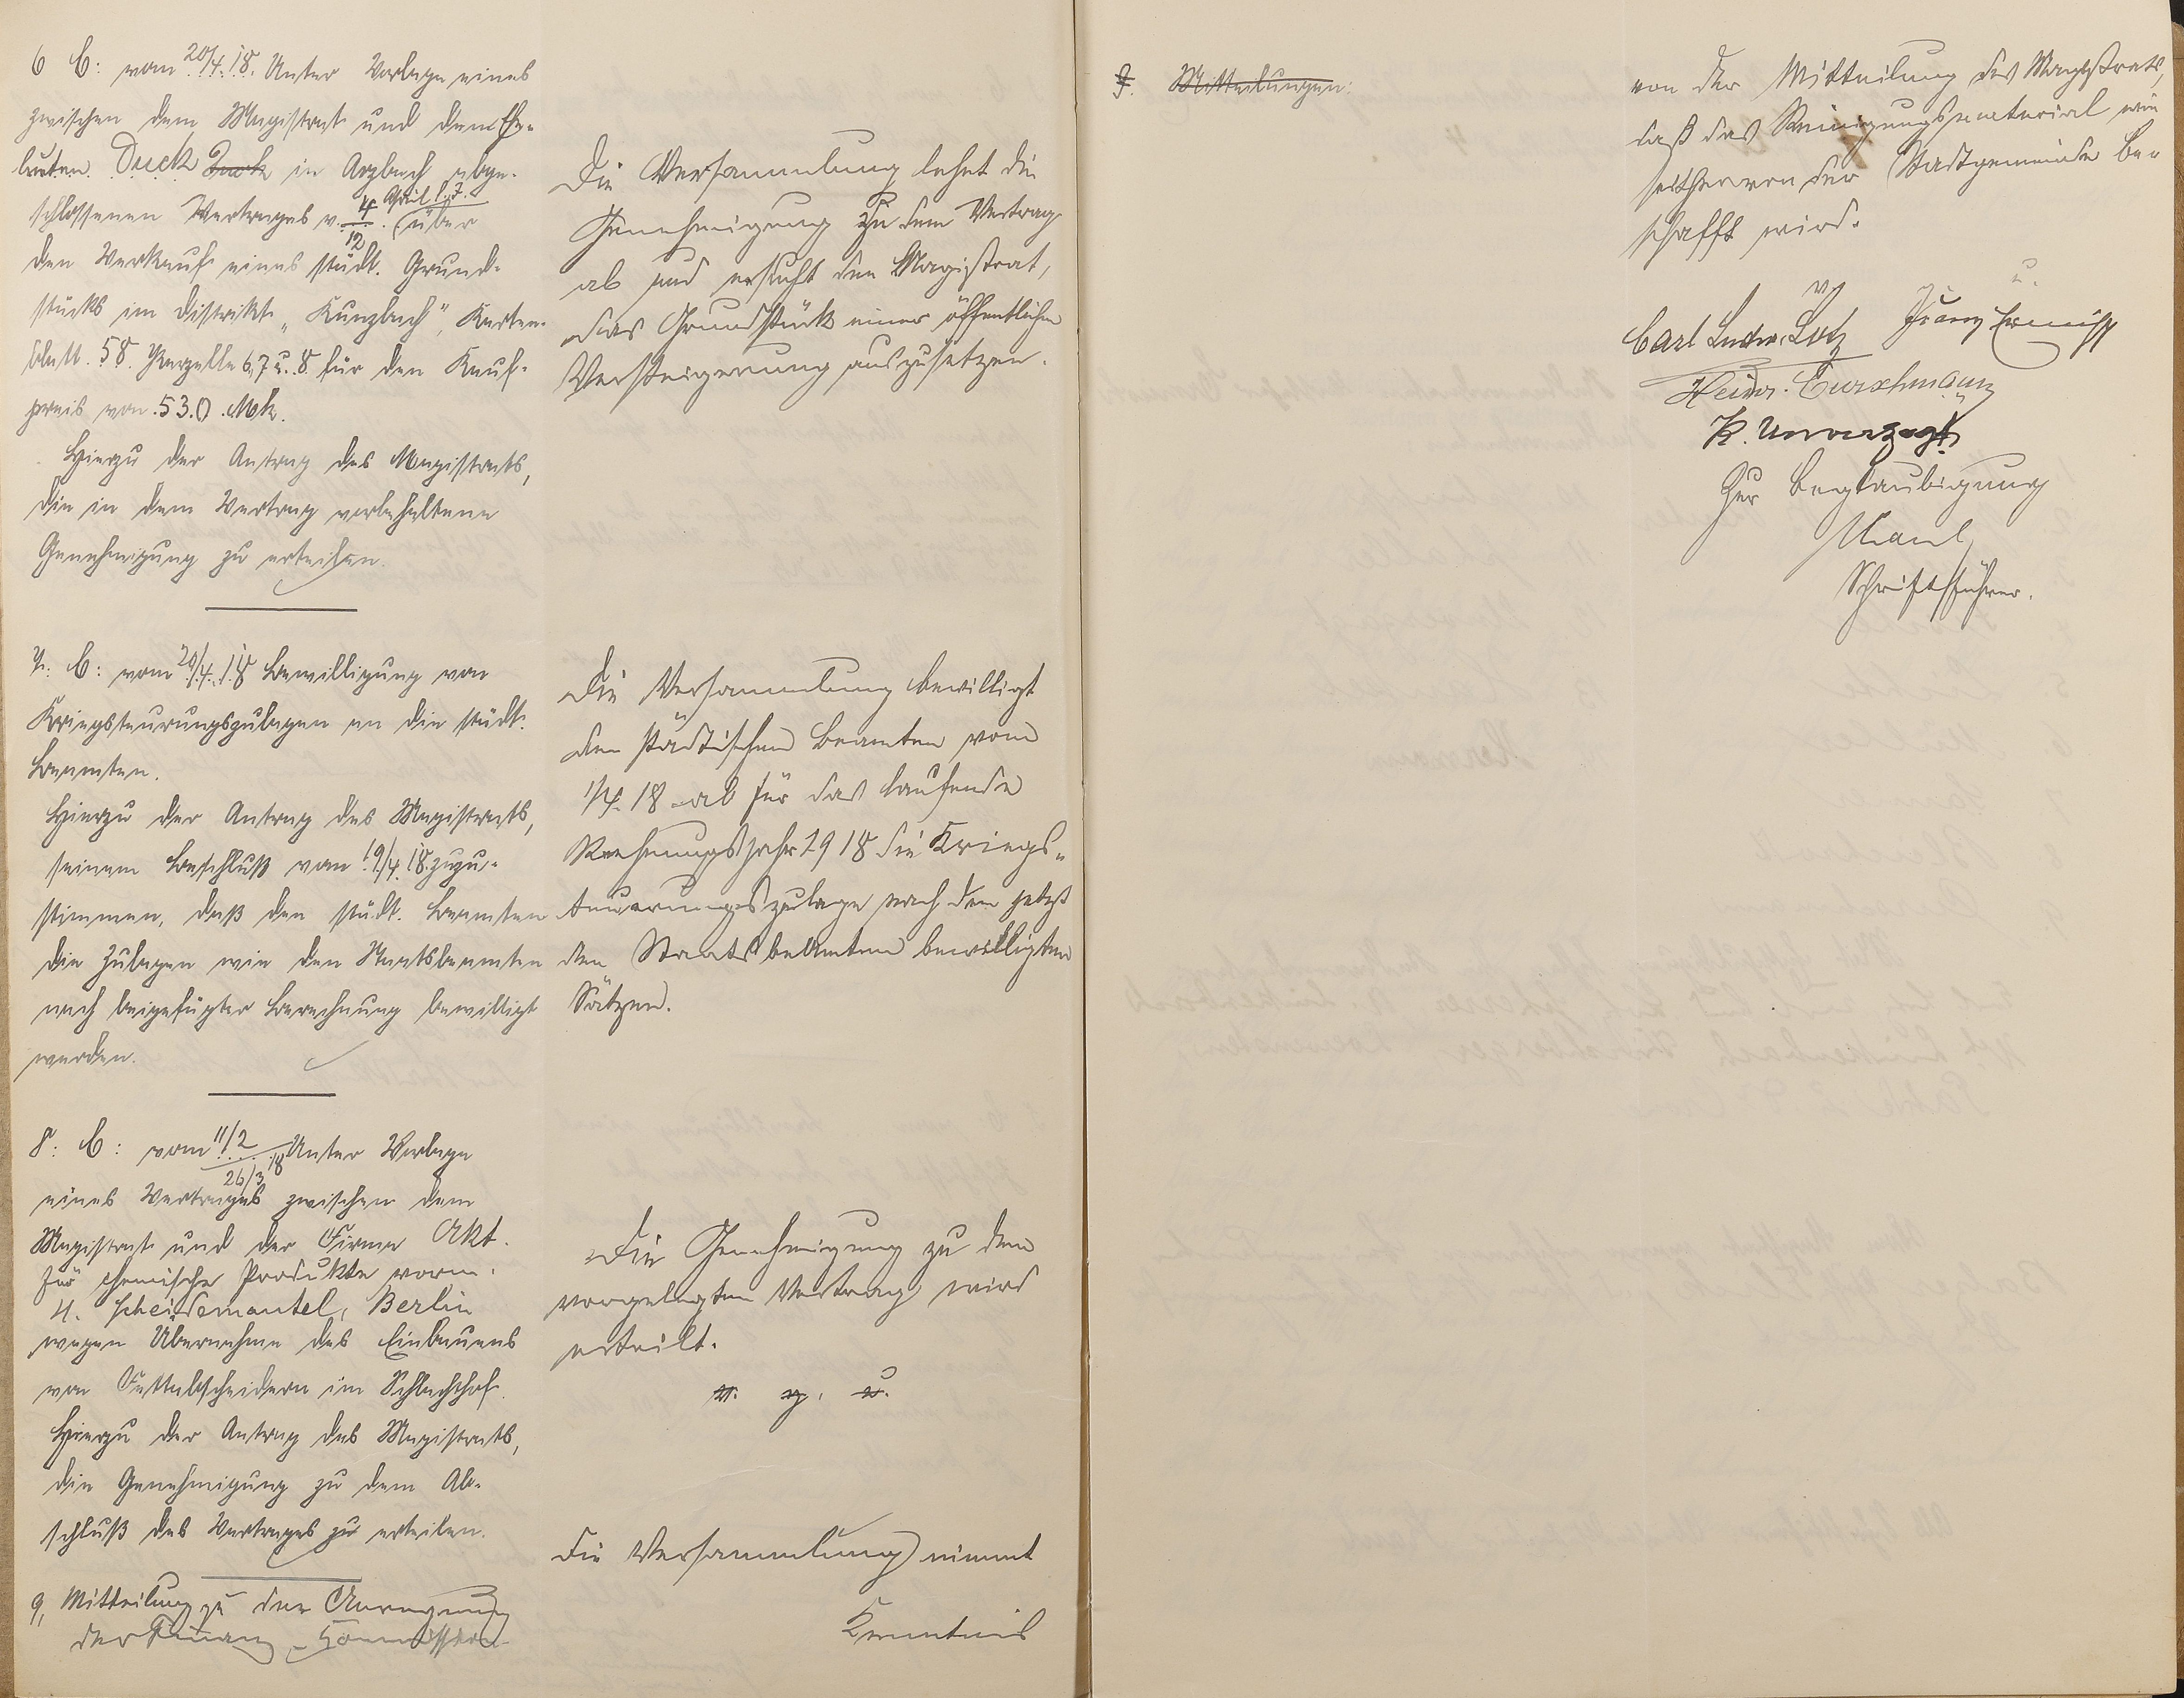 6 C: vom 20/4.18. Unter Vorlage eines
zwischen dem Magistrat und den Ehe-
leuten Duck in Arzbach abge-
schlossenen Vertrages v. 4/12. April l. J. über
den Verkauf eines städt. Grund-
stücks im Distrikt „Kunzbach", Karten-
blatt 58 Parzelle 6, 7 u. 8 für den Kauf-
preis von 530 Mk.
Hierzu der Antrag des Magistrats,
die in dem Vertrag vorbehaltene
Genehmigung zu erteilen.
Die Versammlung lehnt die
Genehmigung zu dem Vertrag
ab und ersucht den Magistrat,
das Grundstück einer öffentlichen
Versteigerung auszusetzen.
7. C: vom 20/4.18 Bewilligung von
Kriegsteurungszulagen an die städt.
Beamten.
Hierzu der Antrag des Magistrats,
seinem Beschluß vom 19/4.18 zuzu-
stimmen, daß den städt. Beamten
die Zulagen wie den Staatsbeamten
nach beigefügter Berechnung bewilligt
werden.
Die Versammlung bewilligt
den städtischen Beamten vom
1/4.18 ab für das laufende
Rechnungsjahr 1918 die Kriegs-
teuerungszulage nach den jetzt
den Staatsbeamten bewilligten
Sätzen.
8. C: vom 11/2 26/3 18 Unter Vorlage
eines Vertrages zwischen dem
Magistrat und der Firma Akt.
für chemische Produkte vorm.
H. Scheidemantel, Berlin
wegen Übernahme des Einbauens
von Fettabscheidern im Schlachthof.
Hierzu der Antrag des Magistrats,
die Genehmigung zu dem Ab-
schluß des Vertrages zu erteilen.
Die Genehmigung zu dem
vorgelegten Vertrag wird
erteilt.
v. g. u.
9, Mitteilung zu der Anregung
der Finanz-Kommission
Die Versammlung nimmt
Kenntnis
9. Mitteilungen:
von der Mitteilung des Magistrats,
daß das Reinigungsmaterial wie
seither von der Stadtgemeinde be-
schafft wird.
v. u.
Carl Ludw. Lotz Franz Ermisch
Heinr. Curschmann
K. Unverzagt
Zur Beglaubigung
Maul
Schriftführer.